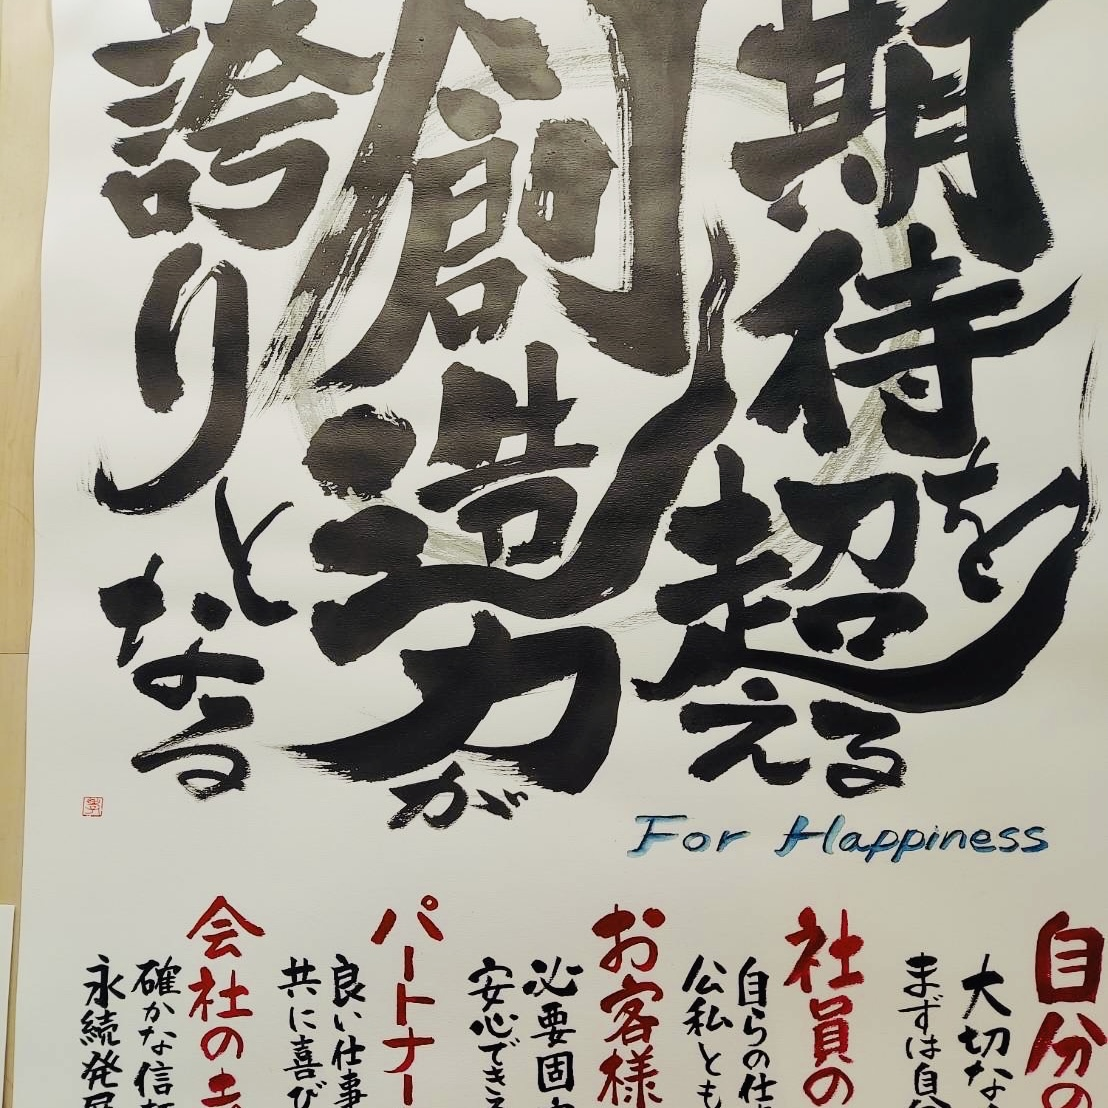 期待を超える
創造力が
誇りとなる
For Happiness
自分の
大切な
まずは自分
社員の
自らの仕
公私とも
お客様
必要固
安心でき
パートナー
良い仕事
共に喜び
会社の
確かな信
永続発展